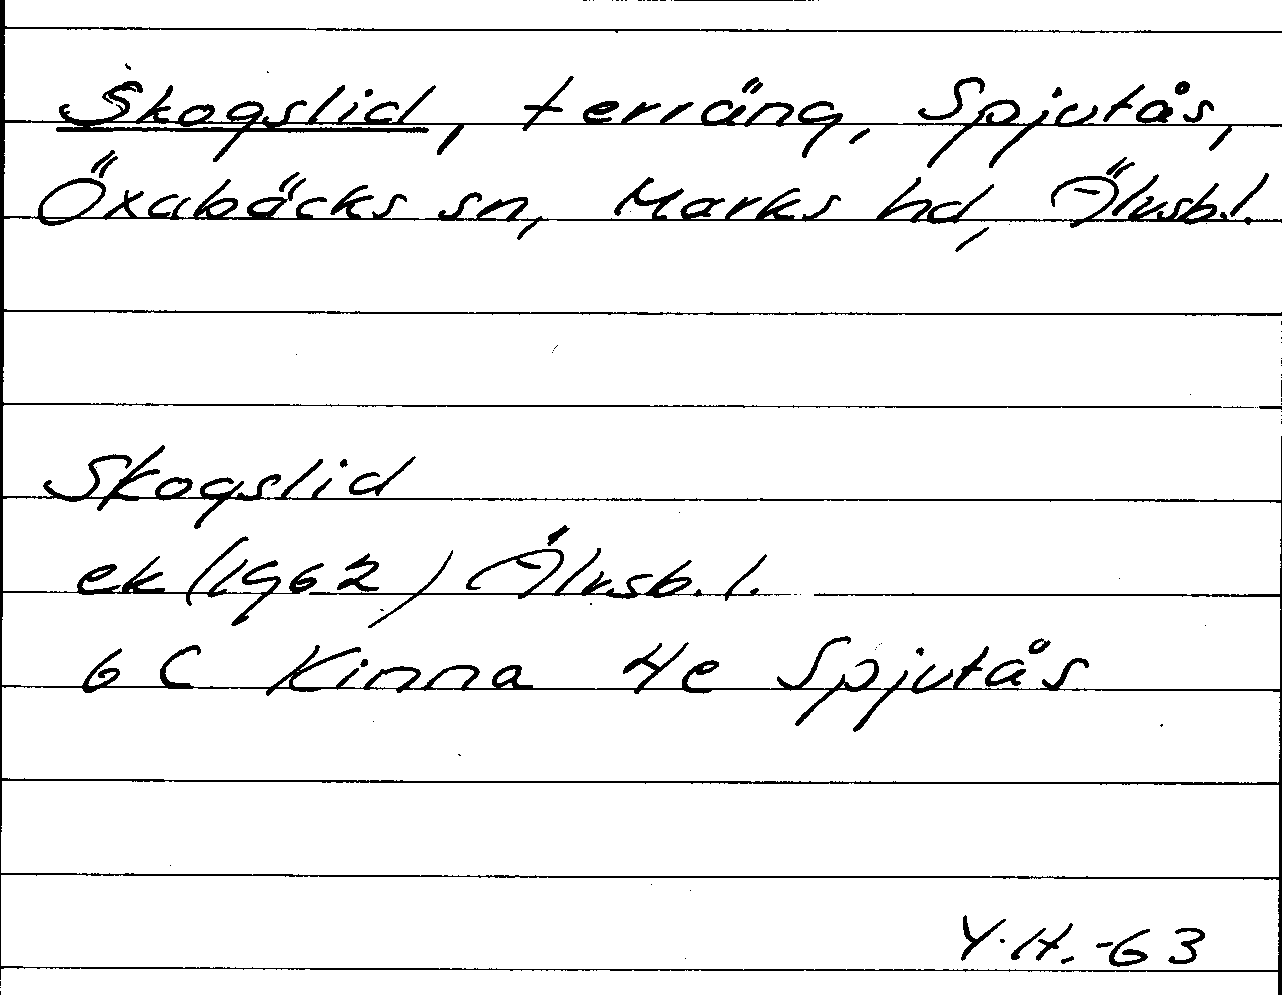 Skogslid, terräng, Spjutås,
Öxabäcks sn, Marks hd, Älvsb.l.
Skogslid
ek (1962) Älvsb.l.
6 C Kinna 4e Spjutås
Y.H.-63